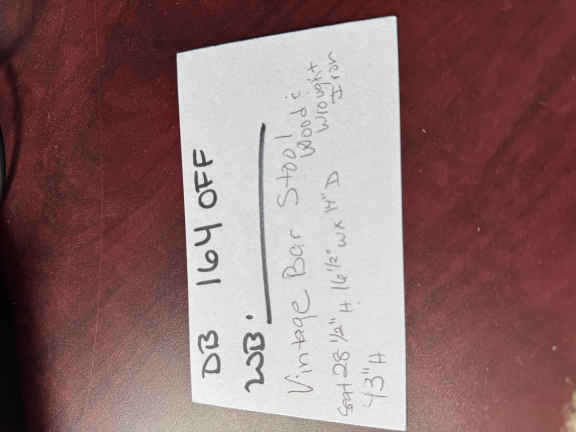 DB 164 OFF
WB.
Vintage Bar Stool
Wood &
Wrought
Iron
Seat 28 1/2" H 16 1/2" W x 14" D
43" H